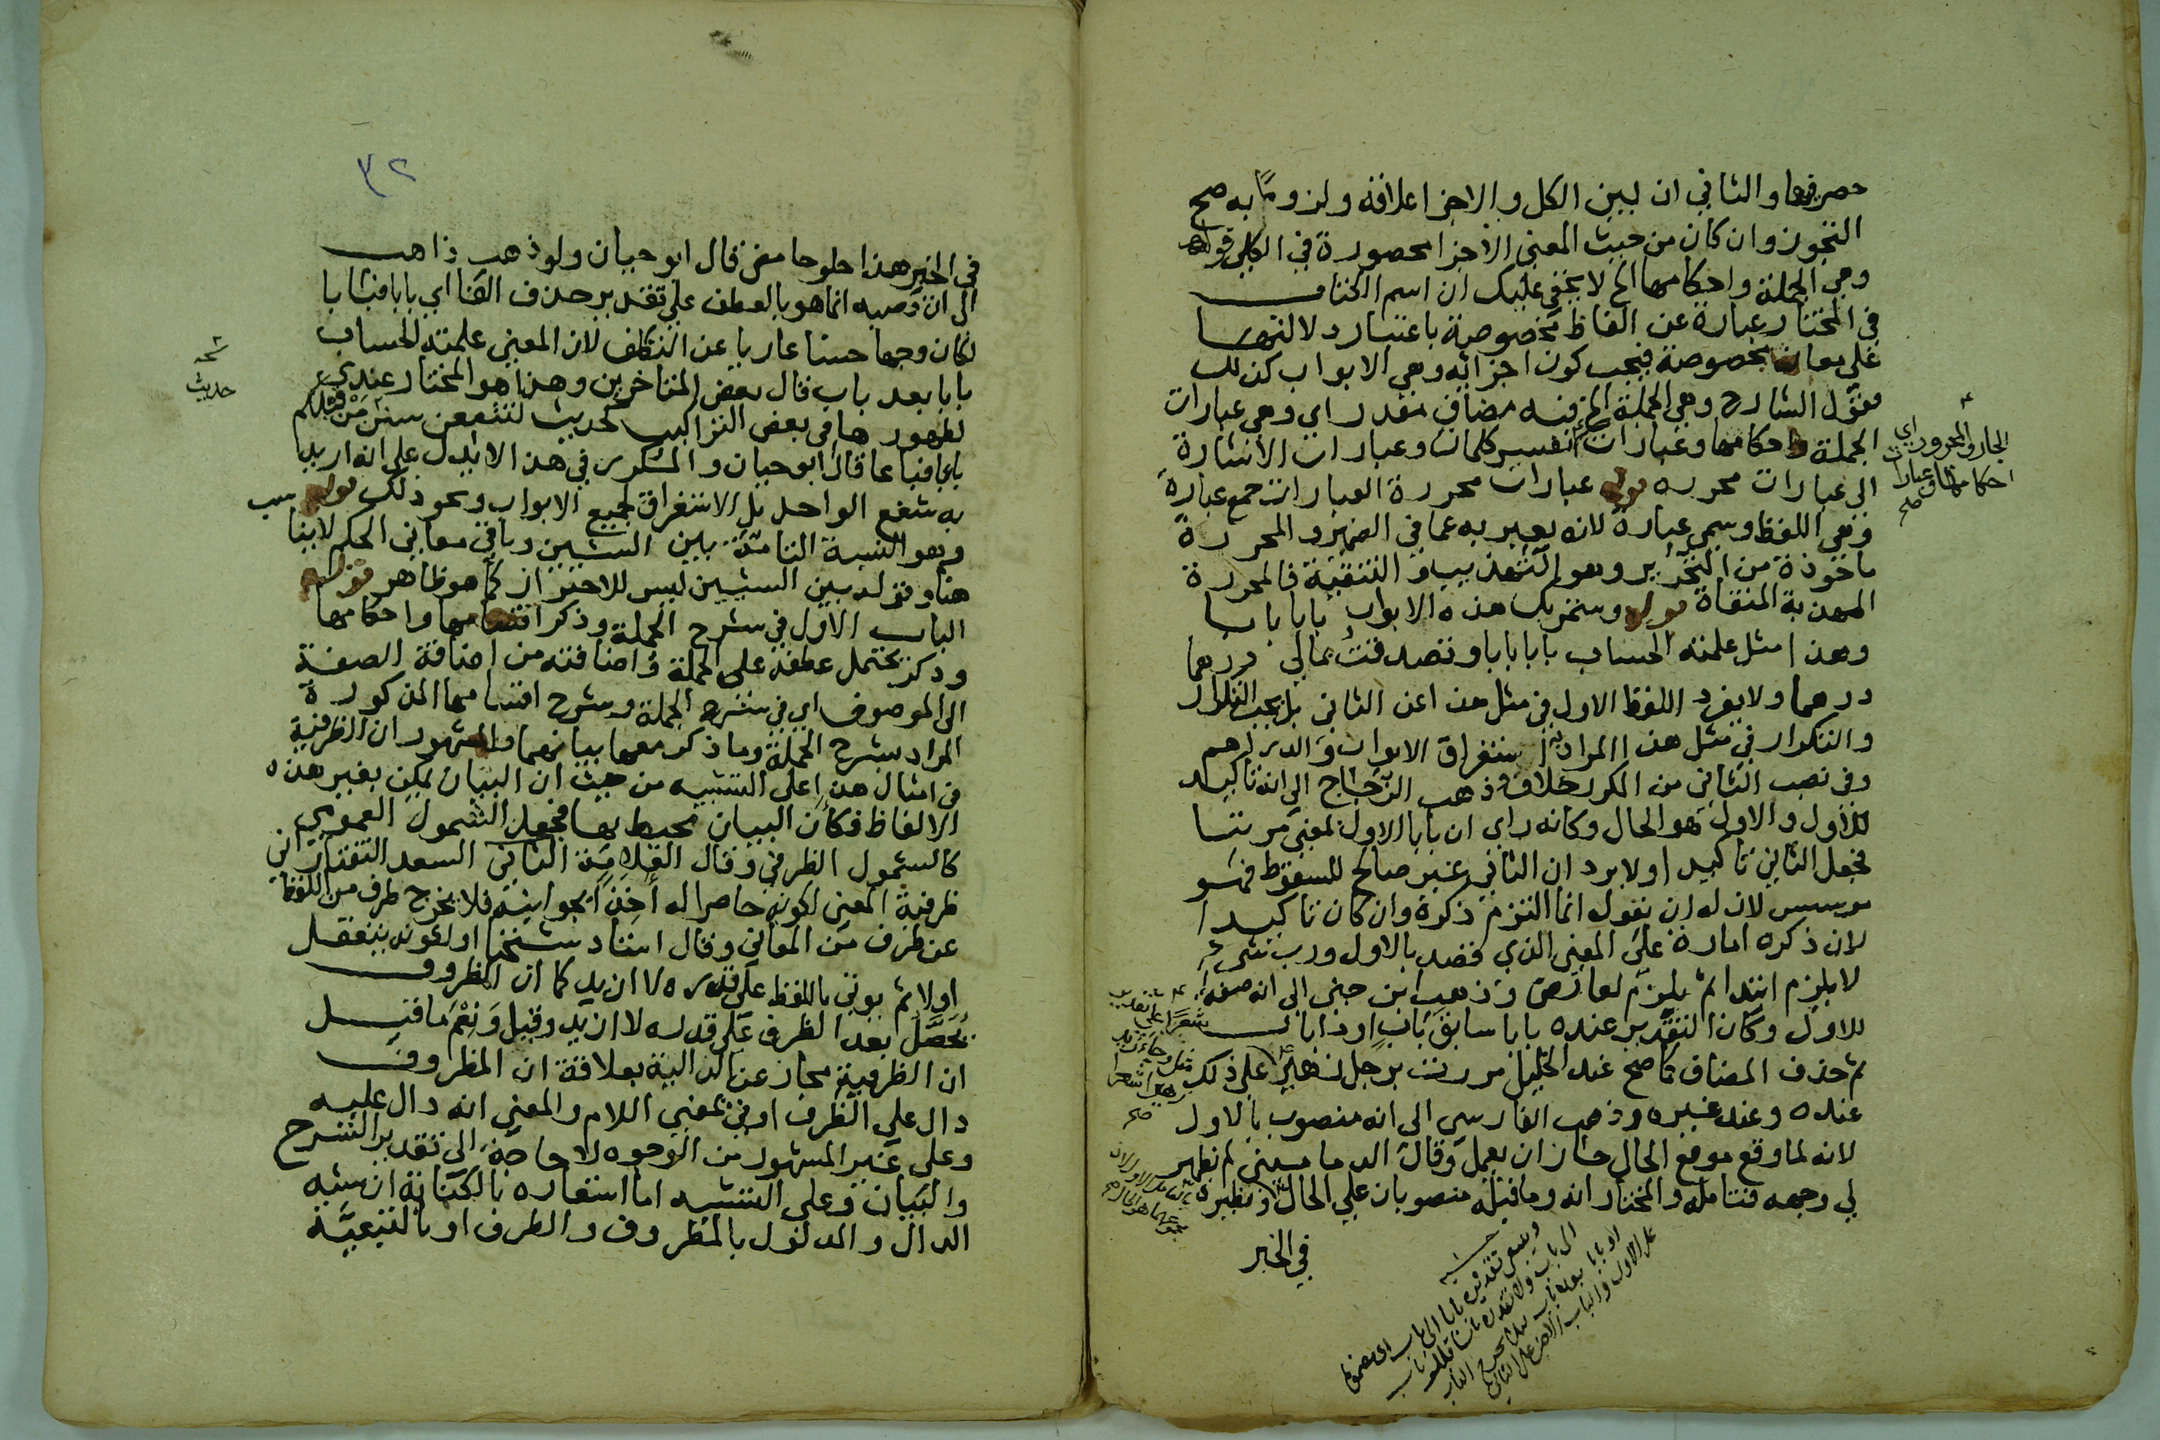 حصر فيها والثاني ان بين الكل والاجزا علاقة ولزوما به صح
التجوز وان كان من حيث المعنى الاجزا محصورة في الكل قوله
وهي الجملة واحكامها الخ لا يخفى عليك ان اسم الكتاب
في المختار عبارة عن الفاظ مخصوصة باعتبار دلالتها
على معان مخصوصة فيجب كون اجزائه وهي الابواب كذلك
فقول الشارح وهي الجملة الخ فيه مضاف مقدر اي وهي عبارات
الجملة واحكامها وعبارات تفسير كلمات وعبارات الاشارة
الى عبارات محرره قوله عبارات محررة العبارات جمع عبارة
وهي اللفظ وسمي عبارة لانه يعبر به عما في الضمير والمحررة
ماخوذة من التحرير وهو التهذيب والتنقية فالمحررة
المهذبة المنقاة قوله وستمر بك هذه الابواب بابا بابا
وهذا مثل علمته الحساب بابا بابا وتصدقت بمالي درهما
درهما ولا يفرد اللفظ الاول في مثل هذا عن الثاني بل يجب التكرار
والتكرار في مثل هذا المراد به استغراق الابواب والدراهم
وفي نصب الثاني من المكرر خلاف وذهب الزجاج الى انه تاكيد
للاول والاول هو الحال وكانه راى ان بابا الاول بمعنى مرتبا
فجعل الثاني تاكيدا ولا يرد ان الثاني غير صالح للسقوط فهو
موسس لان له ان يقول انما التزم ذكره وان كان تاكيدا
لان ذكره امارة على المعنى الذي قصد بالاول ورب شيء
لا يلزم ابتدا ثم يلزم لعارض وذهب ابن جني الى انه صفة
للاول وكان التقدير عنده بابا سابق باب او ذا باب
ثم حذف المضاف كما صح عند الخليل مررت برجل زهير على ذلك
عنده وعند غيره وذهب الفارسي الى انه منصوب بالاول
لانه لما وقع موقع الحال جاز ان يعمل وقال الدماميني لم يظهر
لي وجهه فتامله والمختار انه وما قبله منصوبان على الحال ونظيره
في الخبر
الجار والمجرور اي
احكامها وعبارات
صح
٣٢
في الخبر هذا حلو حامض قال ابو حيان ولو ذهب ذاهب
الى ان نصبه انما هو بالعطف على تقدير حذف الفا اي بابا فبابا
لكان وجها حسنا عاريا عن التكلف لان المعنى علمته الحساب
بابا بعد باب قال بعض المتاخرين وهذا هو المختار عندي
لظهورها في بعض التراكيب كحديث لتتبعن سنن من قبلكم
باعا فباعا قال ابو حيان والعسكري في هذا لا يدل على انه اريد
به شفع الواحد بل الاستغراق لجميع الابواب ونحو ذلك قوله
وهو النسبة التامة بين الشيين وباقي معاني الحكم لا يناسب
هنا وقوله بين الشيين ليس للاحتراز كما هو ظاهر قوله
الباب الاول في شرح الجملة وذكر اقسامها واحكامها
وذكر يحتمل عطفه على الجملة واضافته من اضافة الصفة
الى الموصوف اي في شرح الجملة وشرح اقسامها المذكورة
المراد بشرح الجملة وما ذكر معها بيانهما والمشهور ان الظرفية
في امثال هذا على التشبيه من حيث ان البيان يمكن بغير هذه
الالفاظ فكأن البيان محيط بها فجعل الشمول العمومي
كالشمول الظرفي وقال العلامة الثاني السعد التفتازاني
ظرفية المعنى لكونه حاصرا له اخذا بجوانبه فلا يخرج طرف من اللفظ
عن طرف من المعاني وقال استاد شيخنا او لكونه يتعقل
اولا ثم يوتى باللفظ على قدره لا ازيد كما ان المظروف
يحصل بعد الظرف على قدره لا ازيد وقيل ونعم ما قيل
ان الظرفية مجاز عن الدالية بعلاقة ان المظروف
دال على الظرف او في بمعنى اللام والمعنى انه دال عليه
وعلى غير المشهور من الوجوه لا حاجة الى تقدير الشرح
والبيان وعلى التشبيه اما استعاره بالكناية ان شبه
الدال والمدلول بالمظروف والظرف او بالتبعية
حديث